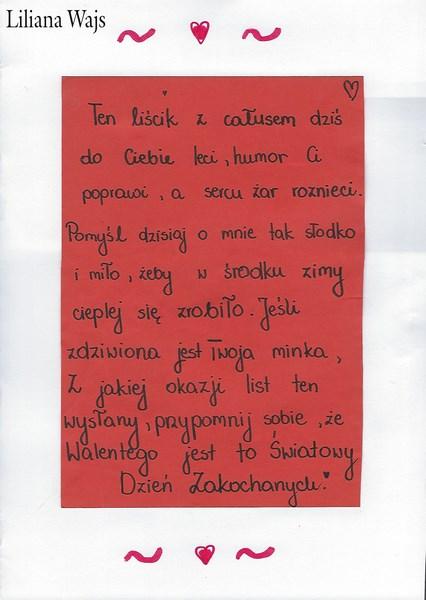 Liliana Wajs
Ten liścik z całusem dziś
do Ciebie leci, humor Ci
poprawi, a sercu żar roznieci.
Pomyśl dzisiaj o mnie tak słodko
i miło, żeby w środku zimy
cieplej się zrobiło. Jeśli
zdziwiona jest Twoja minka,
Z jakiej okazji list ten
wysłany, przypomnij sobie, że
Walentego jest to Światowy
Dzień Zakochanych.